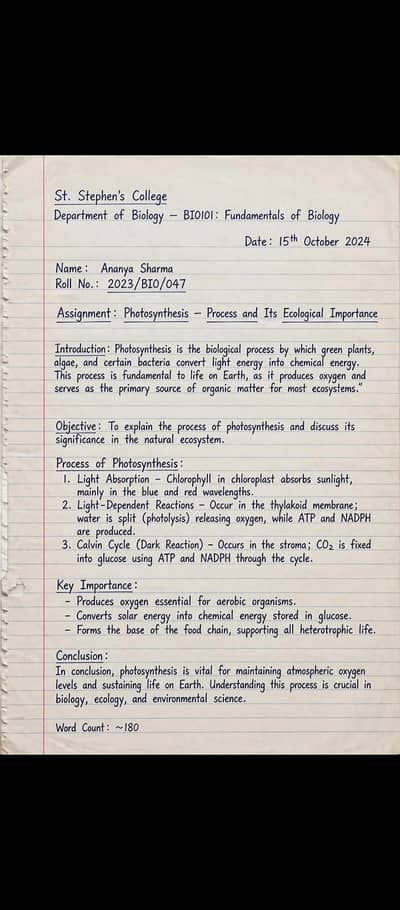 St. Stephen's College
Department of Biology – BIO101: Fundamentals of Biology
Date: 15th October 2024
Name: Ananya Sharma
Roll No.: 2023/BIO/047
Assignment: Photosynthesis – Process and Its Ecological Importance
Introduction: Photosynthesis is the biological process by which green plants,
algae, and certain bacteria convert light energy into chemical energy.
This process is fundamental to life on Earth, as it produces oxygen and
serves as the primary source of organic matter for most ecosystems."
Objective: To explain the process of photosynthesis and discuss its
significance in the natural ecosystem.
Process of Photosynthesis:
1. Light Absorption – Chlorophyll in chloroplast absorbs sunlight,
mainly in the blue and red wavelengths.
2. Light-Dependent Reactions – Occur in the thylakoid membrane;
water is split (photolysis) releasing oxygen, while ATP and NADPH
are produced.
3. Calvin Cycle (Dark Reaction) – Occurs in the stroma; CO₂ is fixed
into glucose using ATP and NADPH through the cycle.
Key Importance:
– Produces oxygen essential for aerobic organisms.
– Converts solar energy into chemical energy stored in glucose.
– Forms the base of the food chain, supporting all heterotrophic life.
Conclusion:
In conclusion, photosynthesis is vital for maintaining atmospheric oxygen
levels and sustaining life on Earth. Understanding this process is crucial in
biology, ecology, and environmental science.
Word Count: ~180